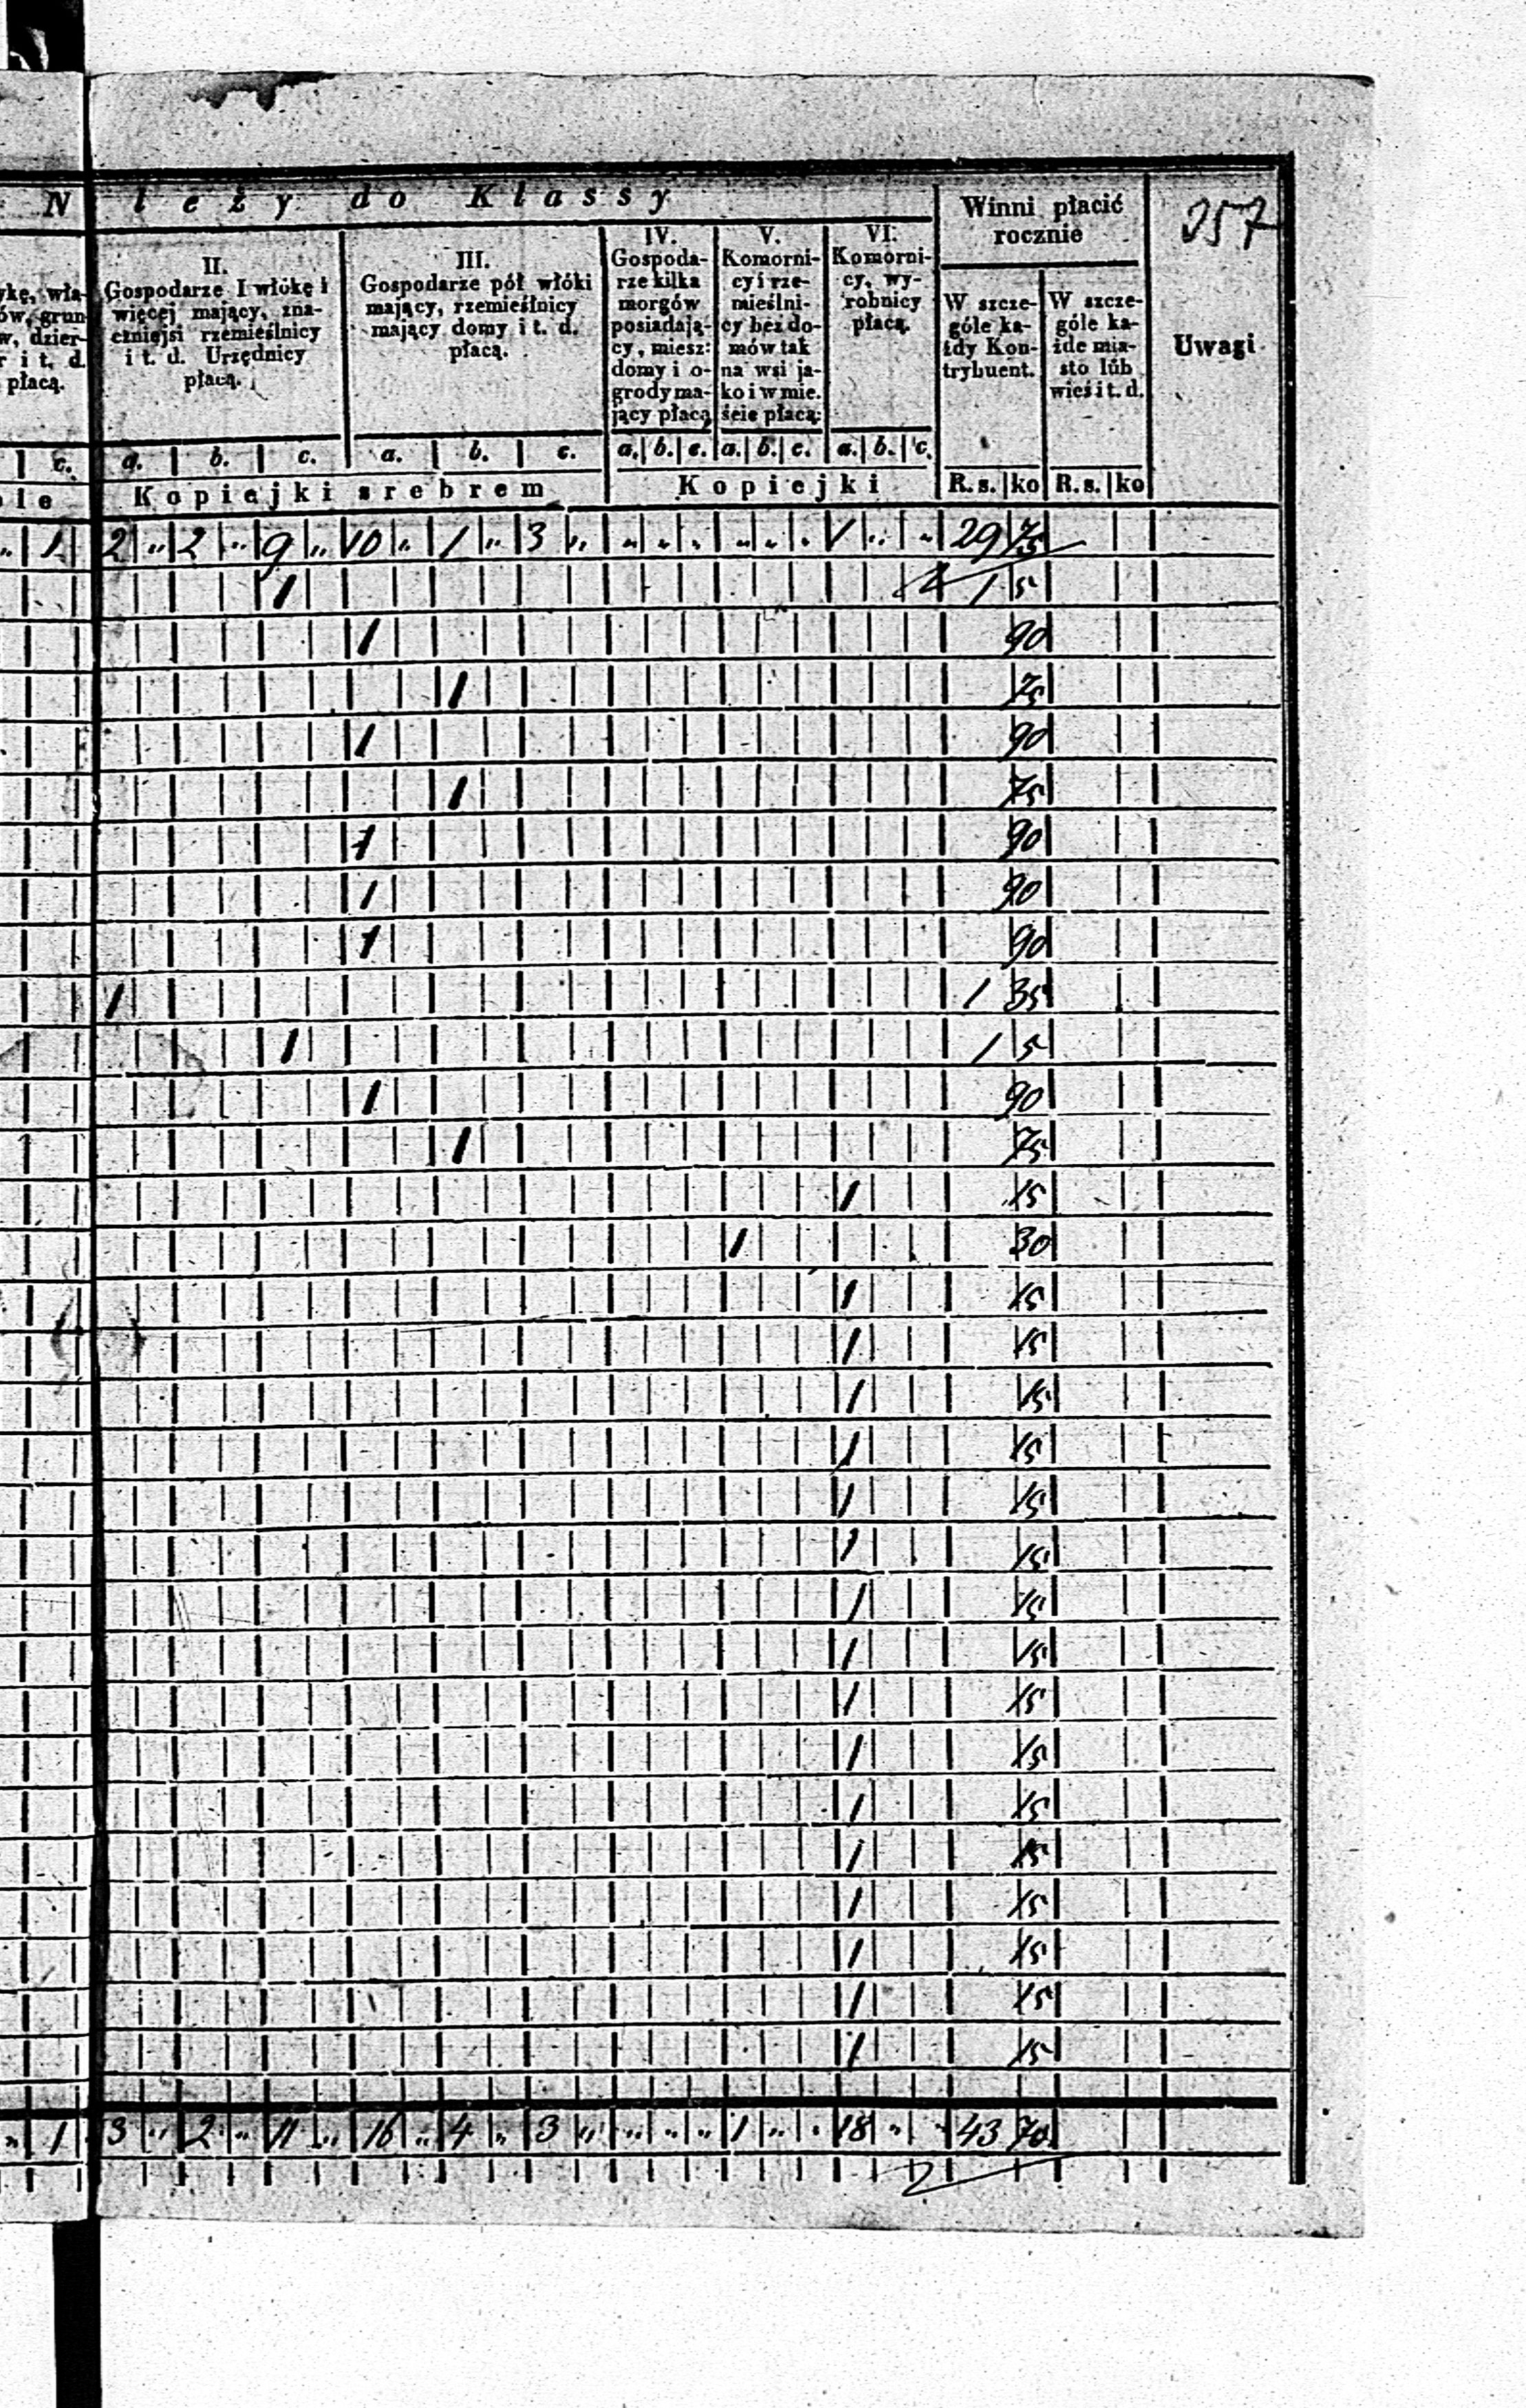 N leży do Klassy
Winni płacić rocznie
257
ykę, wła-
ów, grun-
w, dzier-
r i t. d.
płacą.
II.
Gospodarze I włókę i
więcej mający, zna-
czniejsi rzemieślnicy
i t. d. Urzędnicy
płacą.
III.
Gospodarze pół włóki
mający, rzemieślnicy
mający domy i t. d.
płacą.
IV.
Gospoda-
rze kilka
morgów
posiadają-
cy, miesz:
domy i o-
grody ma-
jący płacą
V.
Komorni-
cy i rze-
mieślni-
cy bez do-
mów tak
na wsi ja-
ko i w mie.
ście płacą:
VI.
Komorni-
cy, wy-
robnicy
płacą.
W szcze-
góle ka-
żdy Kon-
trybuent.
W szcze-
góle ka-
żde mia-
sto lub
wieś i t. d.
Uwagi
c. a. b. c. a. b. c. a. b. c. a. b. c. a. b. c.
le Kopiejki srebrem Kopiejki R. s. ko R. s. ko
„ 1 2 „ 2 „ 9 „ 10 „ 1 „ 3 „ „ „ „ „ „ „ 1 „ „ 29 75
1 1 5
1 90
1 75
1 90
1 75
1 90
1 90
1 90
1 1 35
1 1 5
1 90
1 75
1 15
1 30
1 15
1 15
1 15
1 15
1 15
1 15
1 15
1 15
1 15
1 15
1 15
1 15
1 15
1 15
1 15
1 15
„ 1 3 „ 2 „ 11 „ 16 „ 4 „ 3 „ „ „ „ 1 „ „ 18 „ „ 43 70